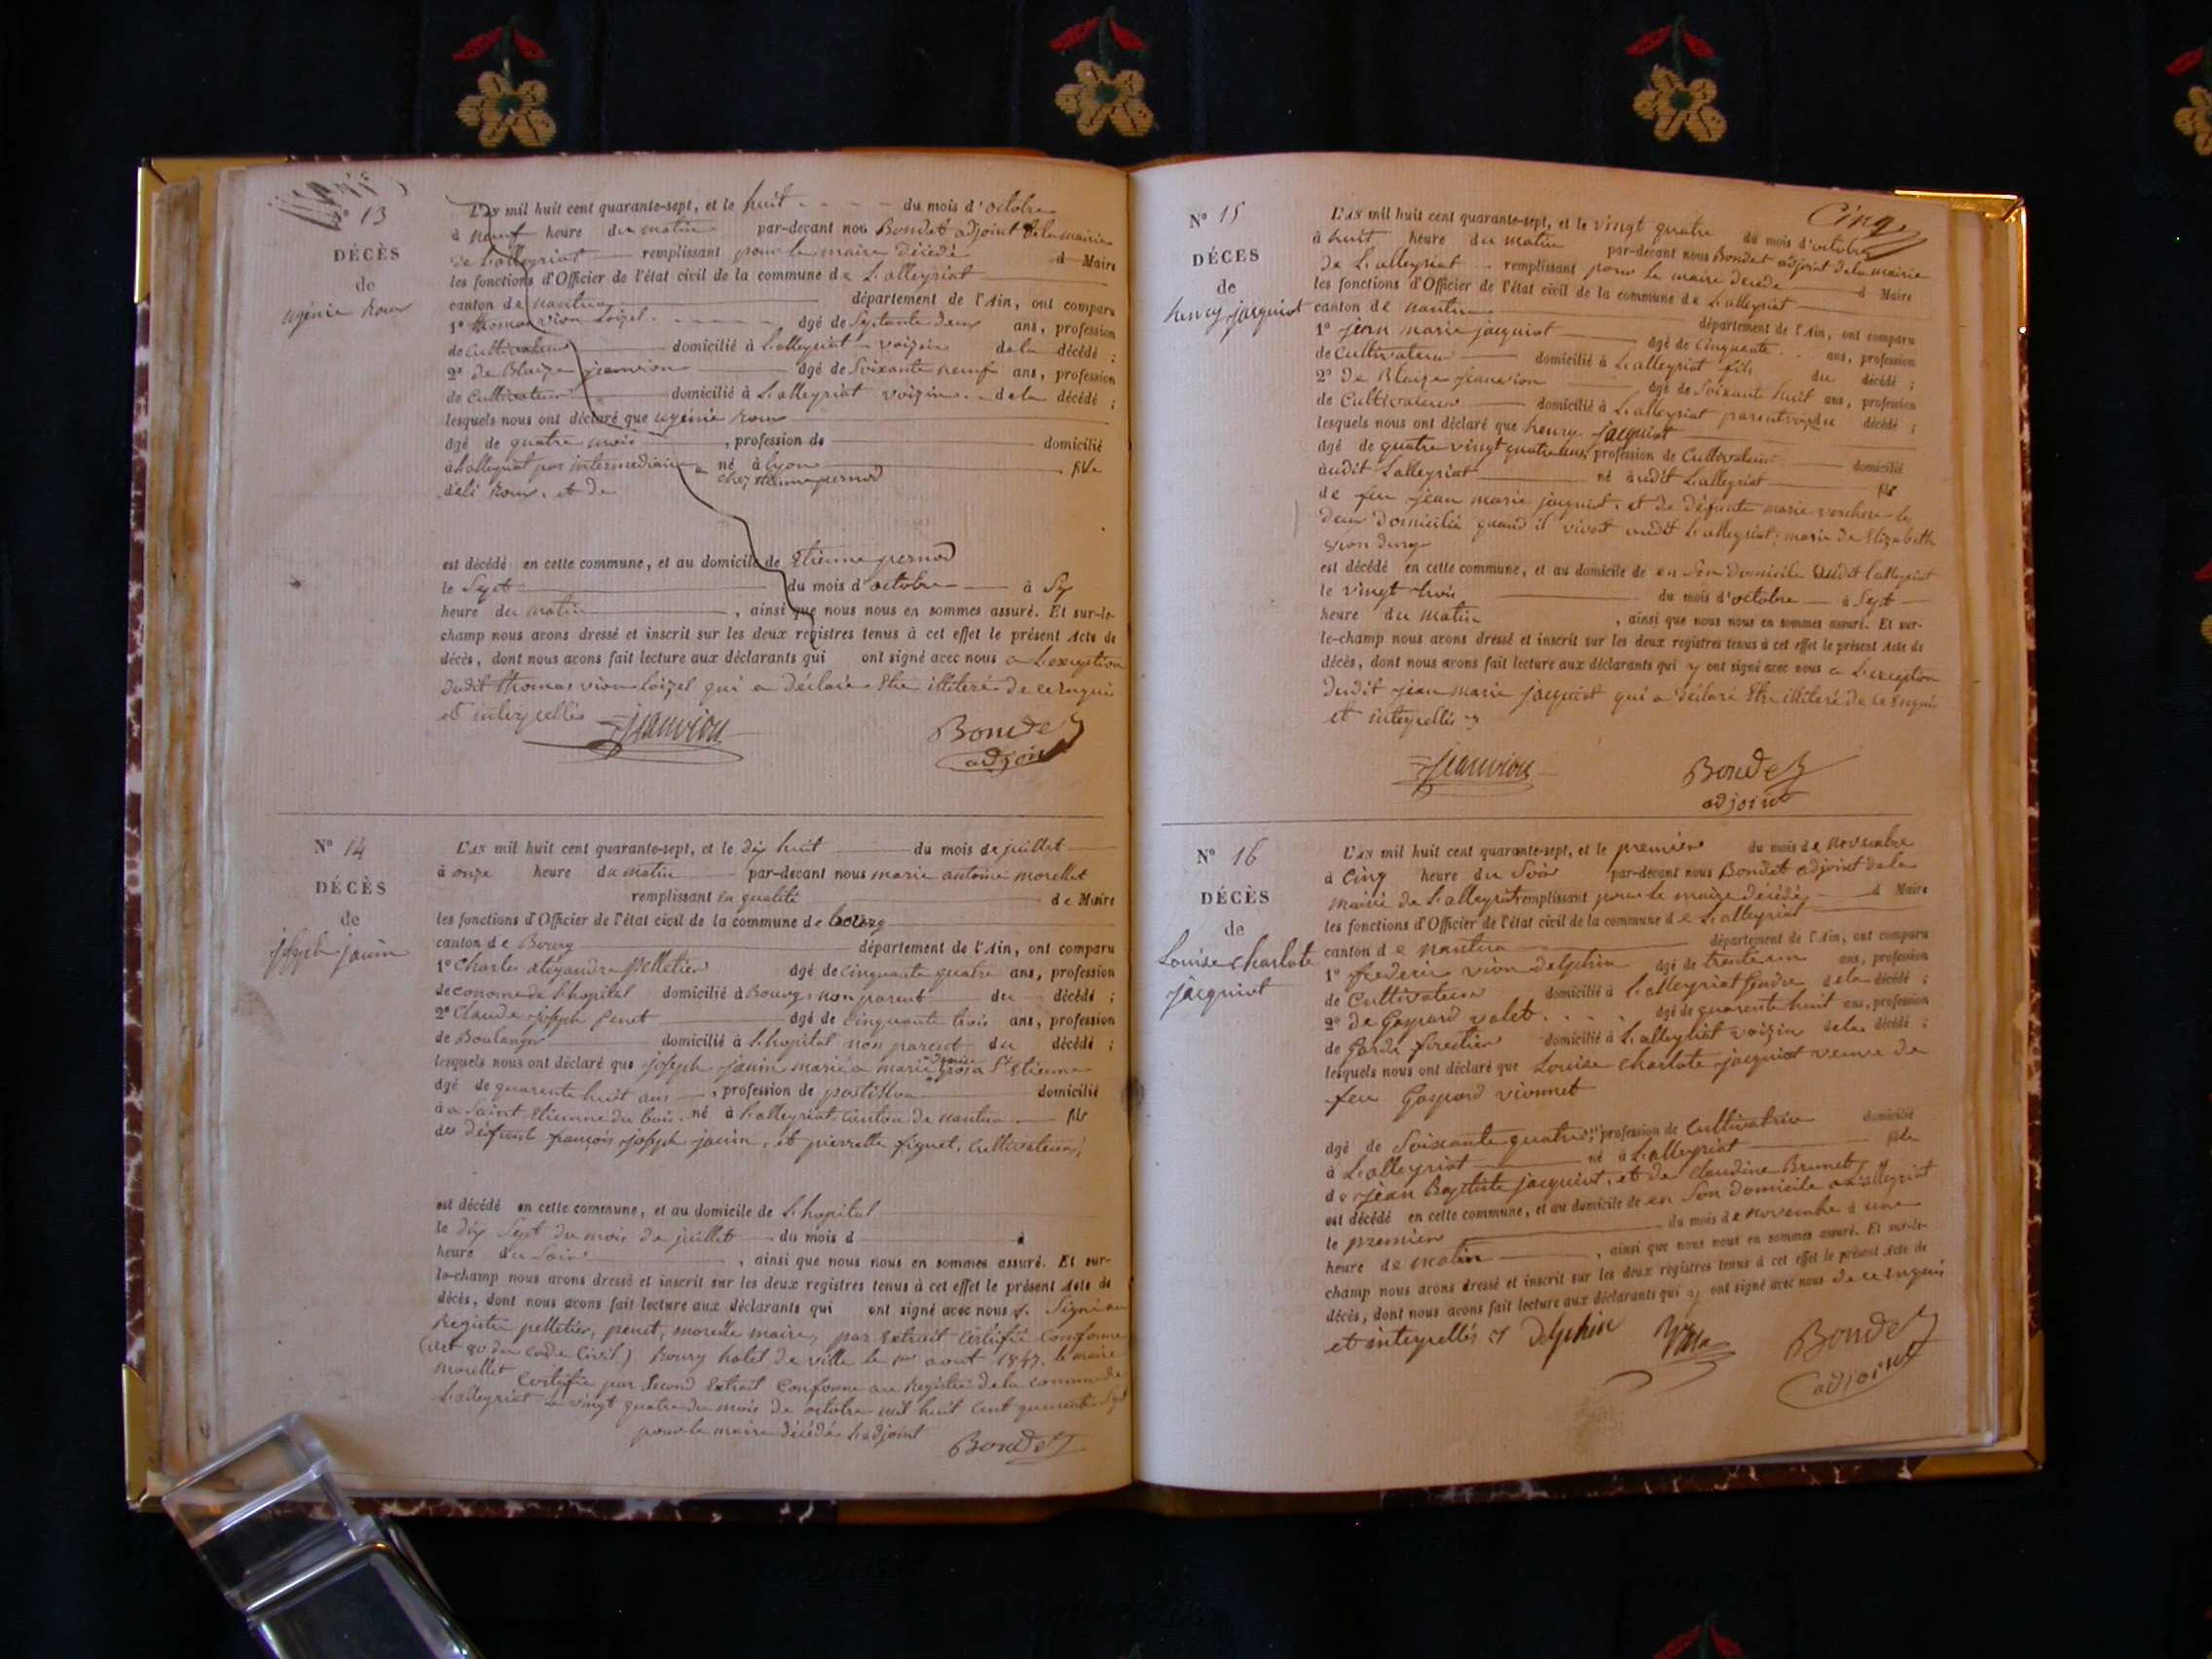 N° 13
DÉCÈS
de
ugénie Roux
L'AN mil huit cent quarante-sept, et le huit du mois d'octobre
à neuf heure du matin par-devant nous Bondet adjoint de la mairie
de Lalleyriat remplissant pour le maire décédé d Maire
les fonctions d'Officier de l'état civil de la commune de Lalleyriat
canton de nantua département de l'Ain, ont comparu
1° thomas vion Loizel agé de Septante deux ans, profession
de Cultivateur domicilié à Lalleyriat voizin de la décédé ;
2° de Blaize jeanvion agé de Soixante neuf ans, profession
de Cultivateur domicilié à Lalleyriat voizin de la décédé ;
lesquels nous ont déclaré que ugénie Roux
agé de quatre mois , profession de domicilié
à Lalleyriat par intermediaire né à lyon fille
chez etienne pernod
Roux, et de
est décédé en cette commune, et au domicile de Etienne pernod
le Sept du mois d'octobre à Six
heure du matin , ainsi que nous nous en sommes assuré. Et sur-le-
champ nous avons dressé et inscrit sur les deux registres tenus à cet effet le présent Acte de
décès, dont nous avons fait lecture aux déclarants qui ont signé avec nous a Lexception
dudit thomas vion Loizel qui a déclaré Etre illiteré de ce enquis
et interpellés
jeanvion
Bondet
adjoint
N° 14
DÉCÈS
de
joseph janin
L'AN mil huit cent quarante-sept, et le dix huit du mois de juillet
à onze heure du matin par-devant nous marie antoine morellet
remplissant la qualité de Maire
les fonctions d'Officier de l'état civil de la commune de bourg
canton de Bourg département de l'Ain, ont comparu
1° Charles alexandre pelletier agé de cinquante quatre ans, profession
deconome de Lhopital domicilié à Bourg non parent du décédé ;
2° Claude joseph penet agé de cinquante trois ans, profession
de Boulanger domicilié à Lhopital non parent du décédé ;
lesquels nous ont déclaré que joseph janin marié a marie a St Etienne
agé de quarente huit ans , profession de postillon domicilié
à a Saint Etienne du bois né à Lalleyriat canton de nantua fils
des défunt françois joseph janin, et pierrette figuet, Cultivateurs
est décédé en cette commune, et au domicile de Lhopital
le dix Sept du mois de juillet du mois d à
heure du Soir , ainsi que nous nous en sommes assuré. Et sur-
le-champ nous avons dressé et inscrit sur les deux registres tenus à cet effet le présent Acte de
décès, dont nous avons fait lecture aux déclarants qui ont signé avec nous Signé au
Registre pelletier, penet, morellet maire, par Extrait Certifié Conforme
(art 80 du Code Civil) Bourg hotel de ville le 1er aout 1847. le maire
morellet Certifié par Second Extrait Conforme au Registre de la commune de
Lalleyriat Le vingt quatre du mois de octobre mil huit Cent quarente Sept
pour le maire décédé Ladjoint Bondet
Cinq
N° 15
DÉCÈS
de
henry jacquiot
L'AN mil huit cent quarante-sept, et le vingt quatre du mois d'octobre
à huit heure du matin par-devant nous Bondet adjoint de la mairie
de Lalleyriat remplissant pour le maire décédé d Maire
les fonctions d'Officier de l'état civil de la commune de Lalleyriat
canton de nantua département de l'Ain, ont comparu
1° jean marie jacquiot agé de Cinquante ans, profession
de Cultivateur domicilié à Lalleyriat fils du décédé ;
2° de Blaize jeanvion agé de Soixante huit ans, profession
de Cultivateur domicilié à Lalleyriat parent du décédé ;
lesquels nous ont déclaré que henry jacquiot
agé de quatre vingt quatre ans, profession de Cultivateur domicilié
audit Lalleyriat né audit Lalleyriat fils
de feu jean marie jacquiot, et de défunte marie verchere les
deux domicilié quand il vivet audit Lalleyriat; marié de Elizabeth
vion
est décédé en cette commune, et au domicile de en Son domicile audit Lalleyriat
le vingt trois du mois d'octobre à Sept
heure du matin , ainsi que nous nous en sommes assuré. Et sur-
le-champ nous avons dressé et inscrit sur les deux registres tenus à cet effet le présent Acte de
décès, dont nous avons fait lecture aux déclarants qui y ont signé avec nous a Lexception
dudit jean marie jacquiot qui a déclaré Etre illiteré de ce enquis
et interpellés
jeanvion
Bondet
adjoint
N° 16
DÉCÈS
de
Louise charlote
jacquiot
L'AN mil huit cent quarante-sept, et le premier du mois de novembre
à cinq heure du Soir par-devant nous Bondet adjoint de la
mairie de Lalleyriat remplissant pour le maire décédé d Maire
les fonctions d'Officier de l'état civil de la commune de Lalleyriat
canton de nantua département de l'Ain, ont comparu
1° frederic vion delphin agé de trente un ans, profession
de Cultivateur domicilié à Lalleyriat gendre de la décédé ;
2° de Gaspard valet agé de quarente huit ans, profession
de Garde forestier domicilié à Lalleyriat voizin de la décédé ;
lesquels nous ont déclaré que Louise charlote jacquiot veuve de
feu Gaspard vionnet
agé de Soixante quatre ans, profession de Cultivatrice domicilié
à Lalleyriat né à Lalleyriat fille
de jean Baptiste jacquiot, et de claudine Brunet
est décédé en cette commune, et au domicile de en Son domicile a Lalleyriat
le premier du mois de novembre à une
heure de matin , ainsi que nous nous en sommes assuré. Et sur-le-
champ nous avons dressé et inscrit sur les deux registres tenus à cet effet le présent Acte de
décès, dont nous avons fait lecture aux déclarants qui y ont signé avec nous de ce enquis
et interpellés Delphin
Bondet
adjoint